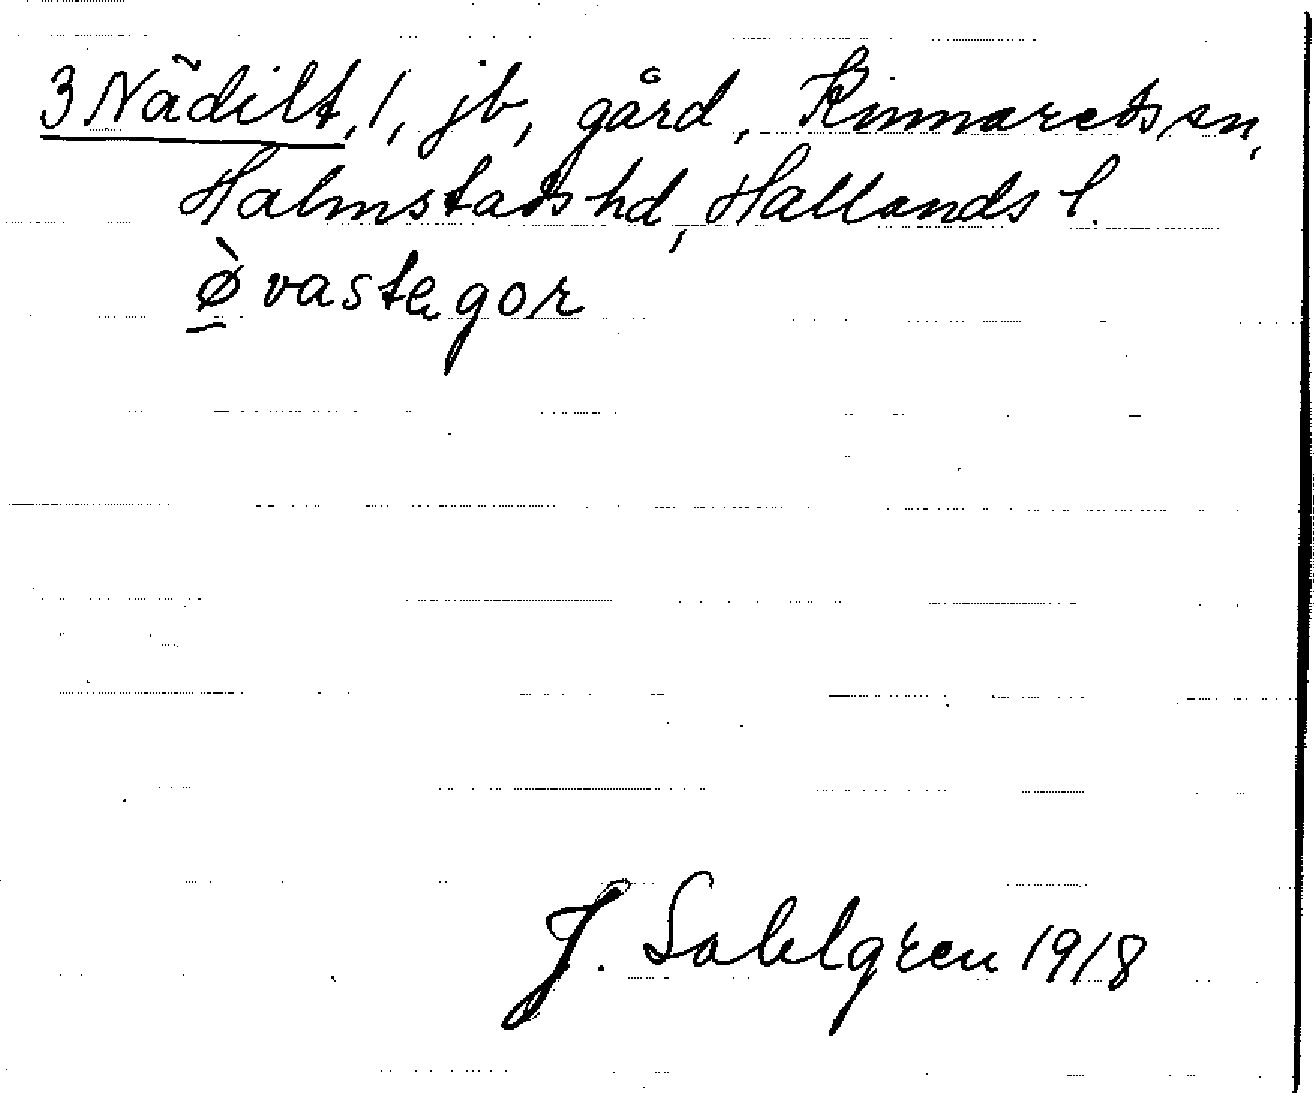 3 Nädilt, 1, jb, gård, Kinnareds sn,
Halmstads hd, Hallands l.
ø̀vastegor
J. Sahlgren 1918